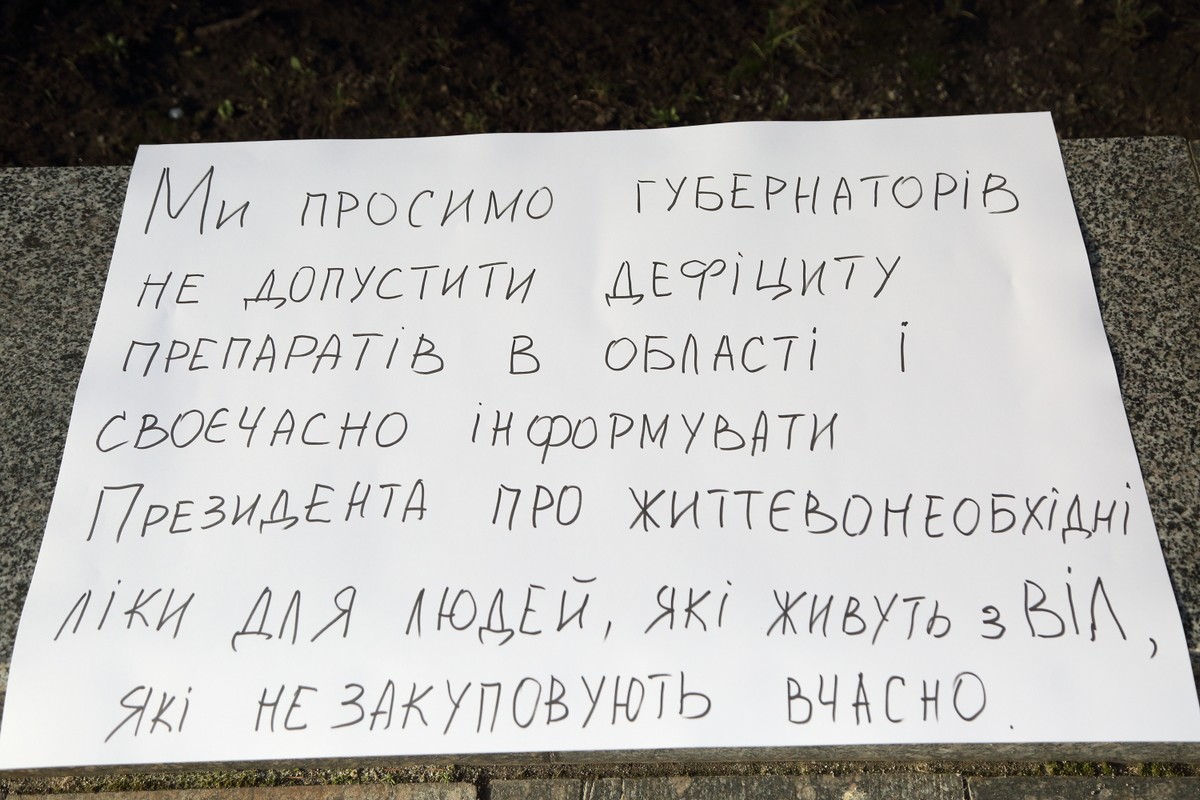 Ми просимо губернаторів
не допустити дефіциту
препаратів в області і
своєчасно інформувати
Президента про життєвонеобхідні
ліки для людей, які живуть з ВІЛ,
які не закуповують вчасно.